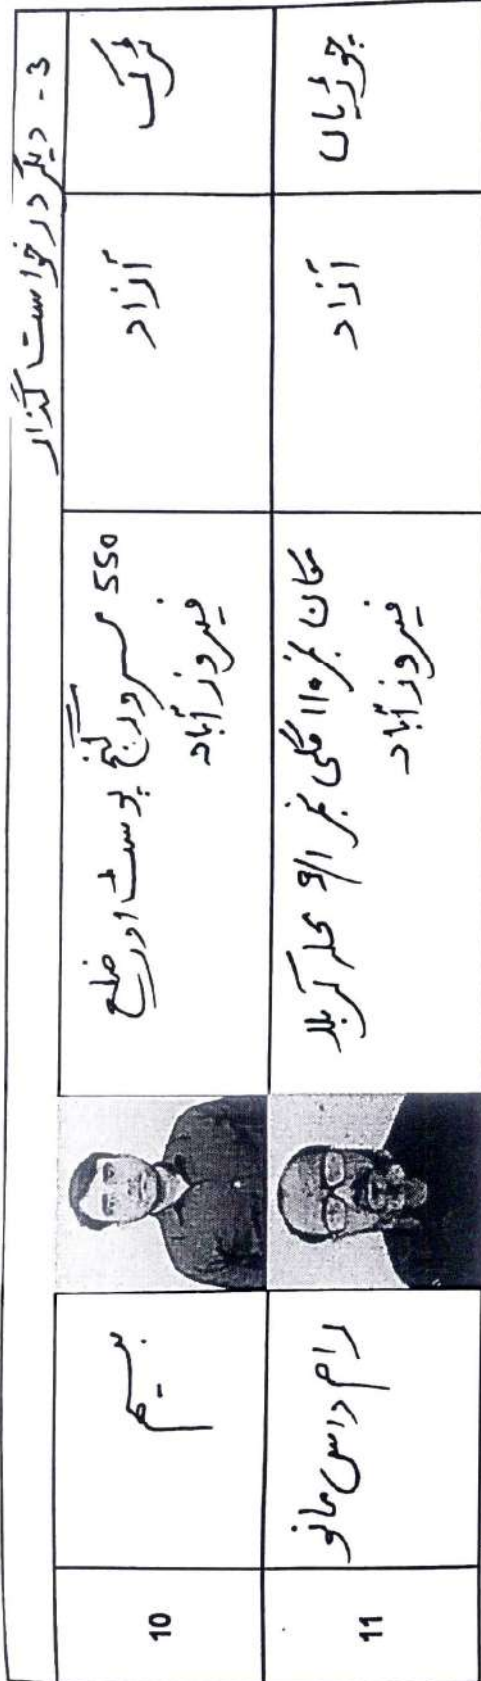 3- دیگر درخواست گذار
10
بھیم
550 سرور گنج پوسٹ اور ضلع
فیروز آباد
آزاد
ٹرک
11
رام داس مانو
مکان نمبر 110 گلی نمبر 9/1 محلہ کربلا
فیروز آباد
آزاد
چوڑیاں